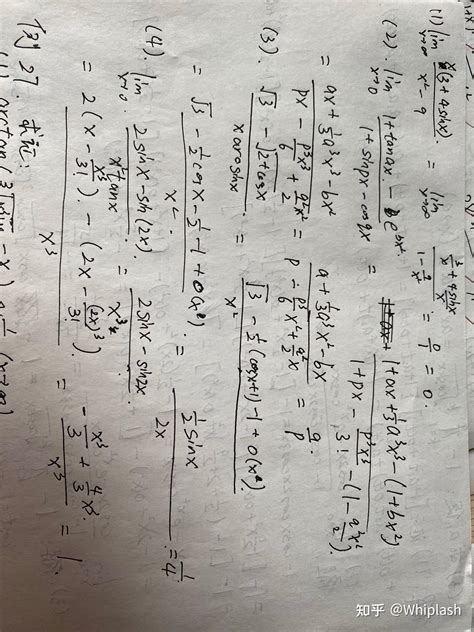 (1) lim x→∞ x(3+4sinx) / x²-9 = lim x→∞ (3/x + 4sinx/x) / (1-9/x²) = 0/1 = 0.
(2). lim x→0 1+tanax - e^{bx²} / 1+sinpx-cosqx = 1+ax+⅓a³x³-(1+bx²) / 1+px-p³x³/3!-(1-q²x²/2).
= ax+⅓a³x³-bx² / px-p³x³/6+q²x²/2 = a+⅓a³x²-bx / p-p³/6x²+q²/2x = a/p
(3). √3-√2+cosx / xarcsinx = √3-½(cosx+1)-1+o(x²) / x²
= √3-½cosx-½-1+o(x²). / x² = ½sinx / 2x = ¼
(4). lim x→0 2sinx-sin(2x). / x²tanx = 2sinx-sin2x / x³
= 2(x-x³/3!).-(2x-(2x)³/3!). / x³ = -x³/3+4/3x³. / x³ = 1.
例27. 试证:
知乎 @Whiplash